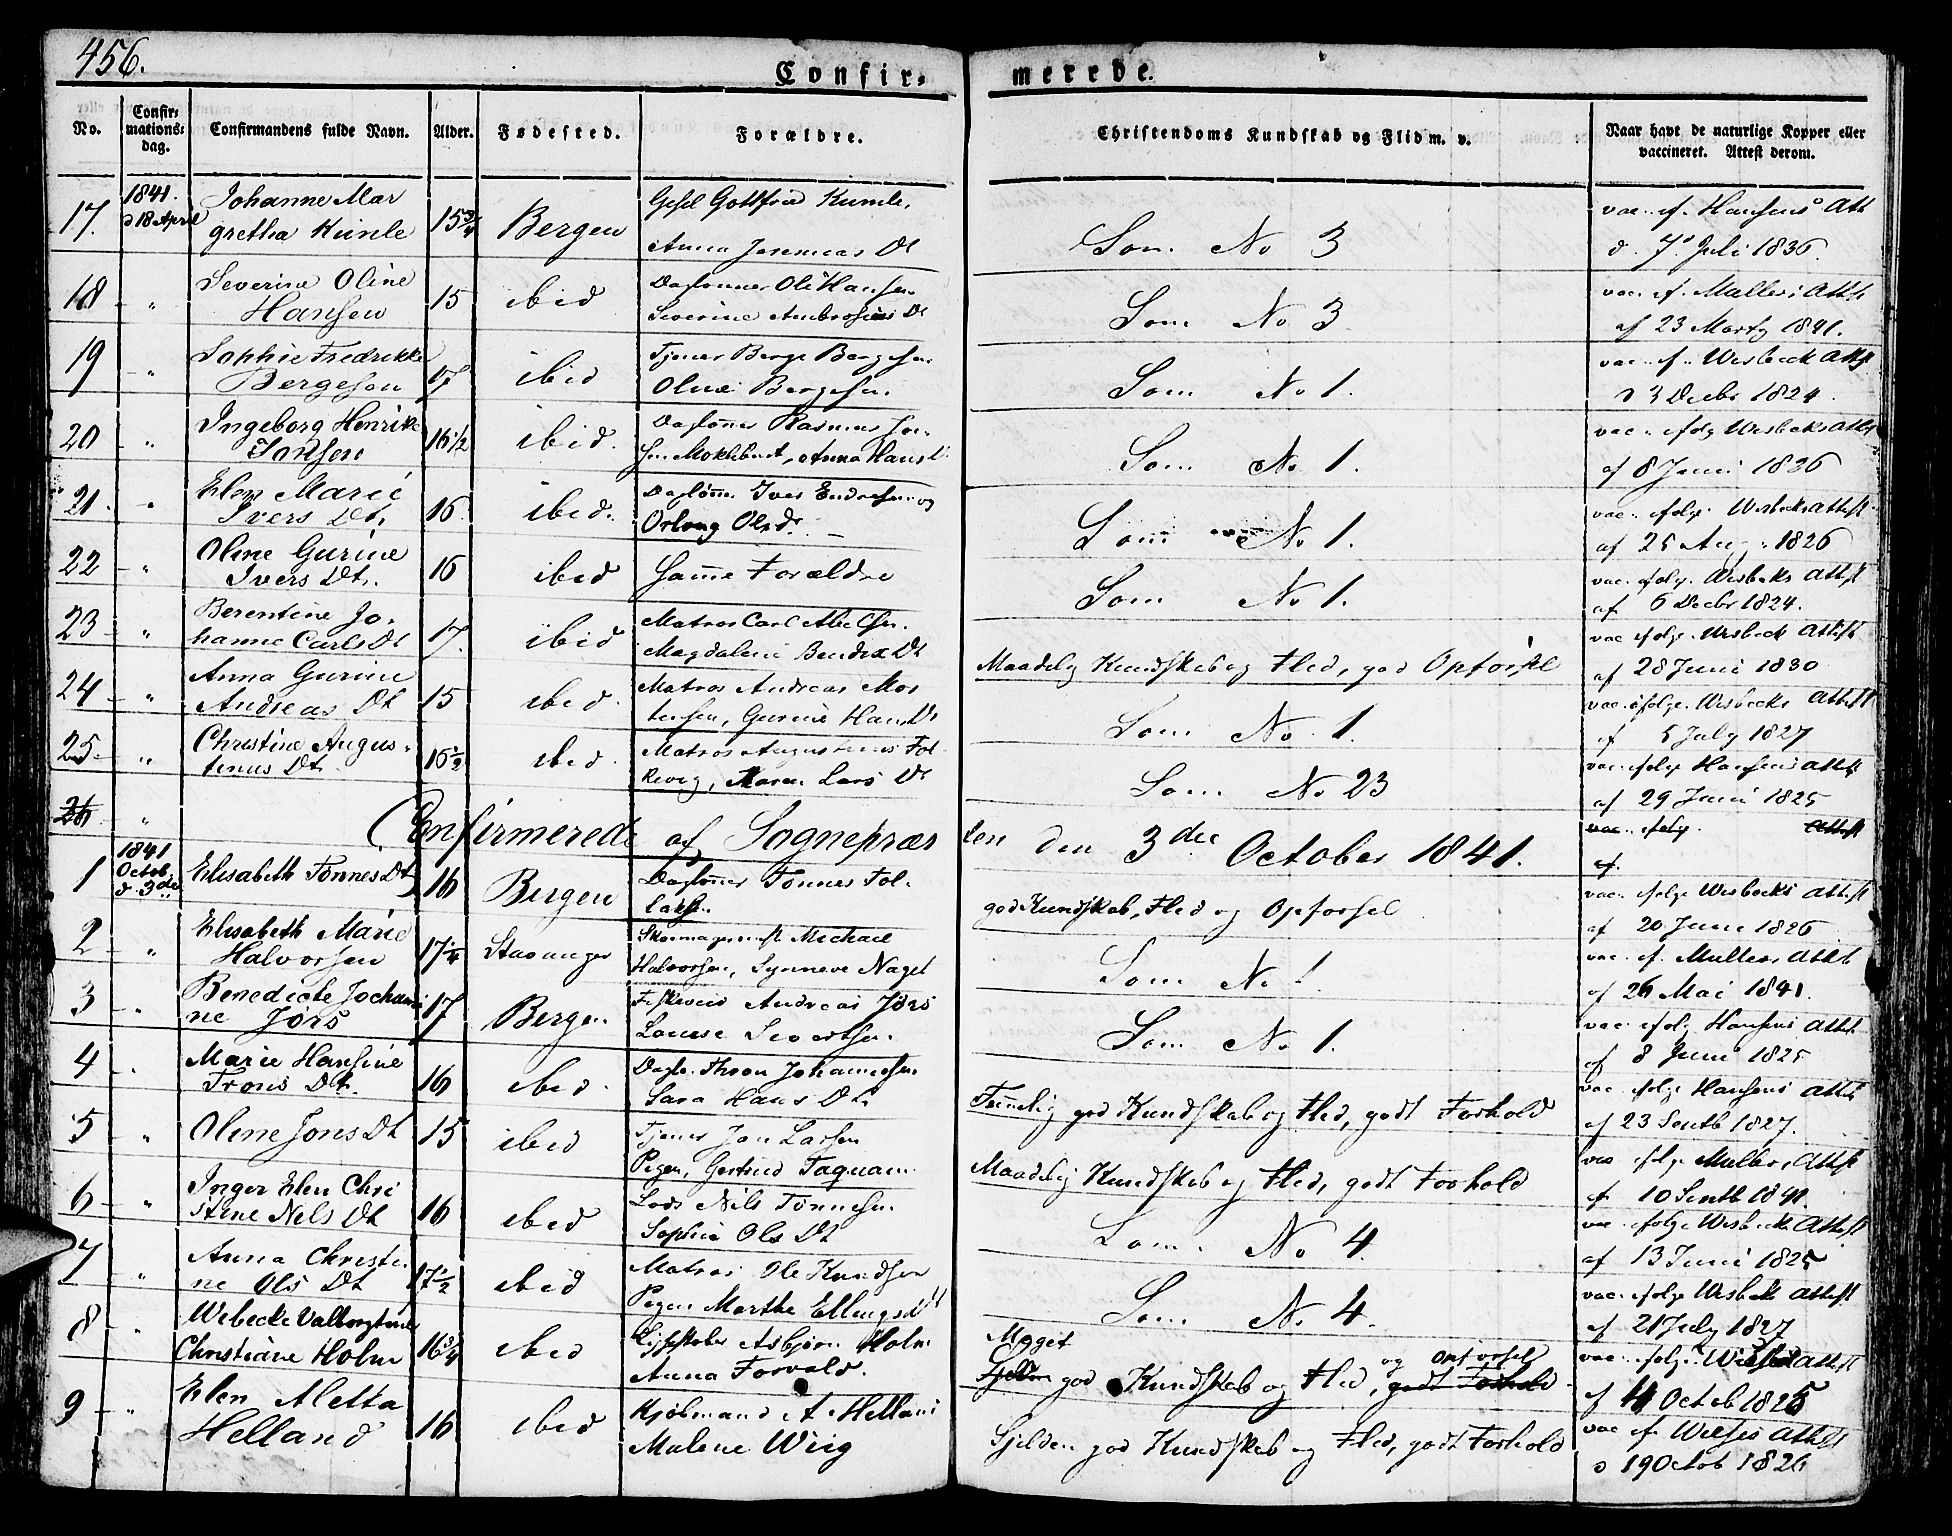 456.
Confir-
merede.
No.
Confir-
mations-
dag.
Confirmandens fulde Navn.
Alder.
Fødested.
Forældre.
Christendoms Kundskab og Flid m. v.
Naar havt de naturlige Kopper eller
vaccineret. Attest derom.
17. 1841. d 18 April Johanne Mar
gretha Kunle 15 3/4 Bergen Gesel Gottfried Kunle,
Anna Jeremias Dt Som No 3 vac. ef. Hansens Att
d. 7 Juli 1836.
18 " Severine Oline
Hansen 15 ibid Daglønner Ole Hansen
Severine Ambrosius Dt Som No 3 vac. ef. Mullers Attst
af 23 Marty 1841.
19 " Sophie Fredrikke
Bergesen 17 ibid Tjener Berge Bergesen
Oline Bergesen. Som No 1. vac. ef. Wisbeck Attst
d 3 Decbr 1824.
20 " Ingeborg Henrikke
Jonsen 16 1/2 ibid. Daglønner Rasmus Jon-
sen , Anna Hans D Som No 1. vac. efolg Wisbecks Attst
af 8 Juni 1826
21. " Elen Marie
Ivers Dt. 16 ibid. Daglønner Iver Endresen og
Ols d. Som No 1. vac. efolge Wisbecks Attest
af 25 Aug. 1826
22 " Oline Gurine
Ivers Dt. 16 ibid Samme Forældre Som No 1. vac. efolge. Wisbecks Attest
af 6 Decbr 1824.
23 " Berentine Jo-
hanne Carls Dt 17. ibid Matros Carl
Magdalene Bendix Dt Maadelig Kundskab og Flid, god Opførsel vac efolge. Wisbeck Attest
af 28 Juni 1830
24 " Anna Gurine
Andreas Dt 15 ibid. Matros Andreas Mor
tensen, Gurine Hans Dt Som No 1. vac. ifolge. Wisbecks Attest
af 5 July 1827
25. " Christine Augus-
tinus Dt. 16 1/2 ibid. Matros Augustinus Fol
kevig, Maren Lars Dt Som No 23 vac. efolge Hansens Attst
af 29 Juni 1825
26. " Confirmerede af Sognepræs
ten den 3die October 1841. vac. efolg. Attest
af.
1 1841 Octob. d. 3die Elisabeth Tønnes Dt 16 Bergen Daglønner Tønnes Tol-
laksen. god Kundskab, Flid og Opførsel vac. efolge Wisbecks Attest
af 20 Juni 1826
2 " Elisabeth Marie
Halvorsen 17 1/4 Stavanger Skomagermest Michael
Halvorsen, Synneve Naget Som No 1. vac. ef. Mullers Attst
af 26 Mai 1841.
3 " Benedicte Jochumi
ne Jørs 17 Bergen Andreas Jørs
Lovise Sivertsen. Som No 1. vac. efolg Hansens Attst.
af 8 Juni 1825
4 " Marie Hansine
Trons Dt. 16 ibid. Dagl. Thron Johannesen
Sara Hans Dt. Temelig god Kundskab og Flid, godt Forhold vac. efolge Hansens Attest
af 23 Septb 1827.
5 " Oline Jons Dt 15 ibid Tjener Jon Larsen
Pigen, Gertrud Taquam. Maadelig Kundskab og Flid, godt Forhold vac efolge Mullers Attst
af 10 Septb 1841.
6 " Inger Elen Chri
stine Nils Dt 16 ibid Lods Nils Tønnesen
Sophie Ols Dt Som No 4. vac. efolge Wisbecks Attest
af 13 Juni 1825
7 " Anna Christi-
ne Ols Dt 17 1/2 ibid Matros Ole Knudsen
Pigen Marthe Ellings Dt Som No 4. vac. efolge Wisbeck Attest
af 21 July 1827
8 " Webecke Valborg
Christiane Holm 16 3/4 ibid Asbjørn Holm
Anna Torvald. Meget
Sjelden god Kundskab og Flid, godt Forhold og Opførsel vac. efolge Attst
af 4 Octob 1825
9 " Elen Aletta
Helland 16 ibid Kjøbmand A Helland
Malene Wiig Sjelden god Kundskab og Flid, godt Forhold vac ef. Attest
d 19 Octob 1826